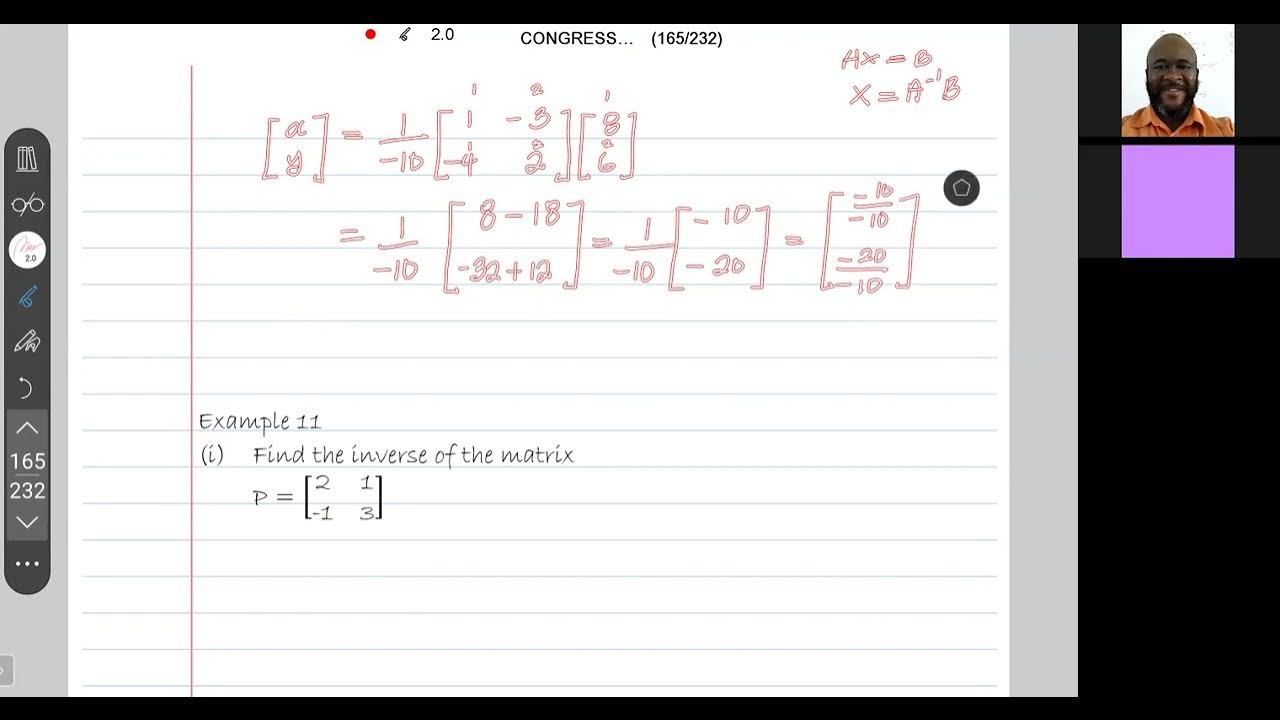 2.0 CONGRESS... (165/232)
Ax = B
X = A⁻¹B
1 2 1
[x] = 1/-10 [1 -3] [8]
[y] [-4 2] [6]
1 2 2
= 1/-10 [8 - 18] = 1/-10 [-10] = [-10/-10]
[-32 + 12] [-20] [-20/-10]
2.0
165
232
Example 11
(i) Find the inverse of the matrix
P = [2 1]
[-1 3]